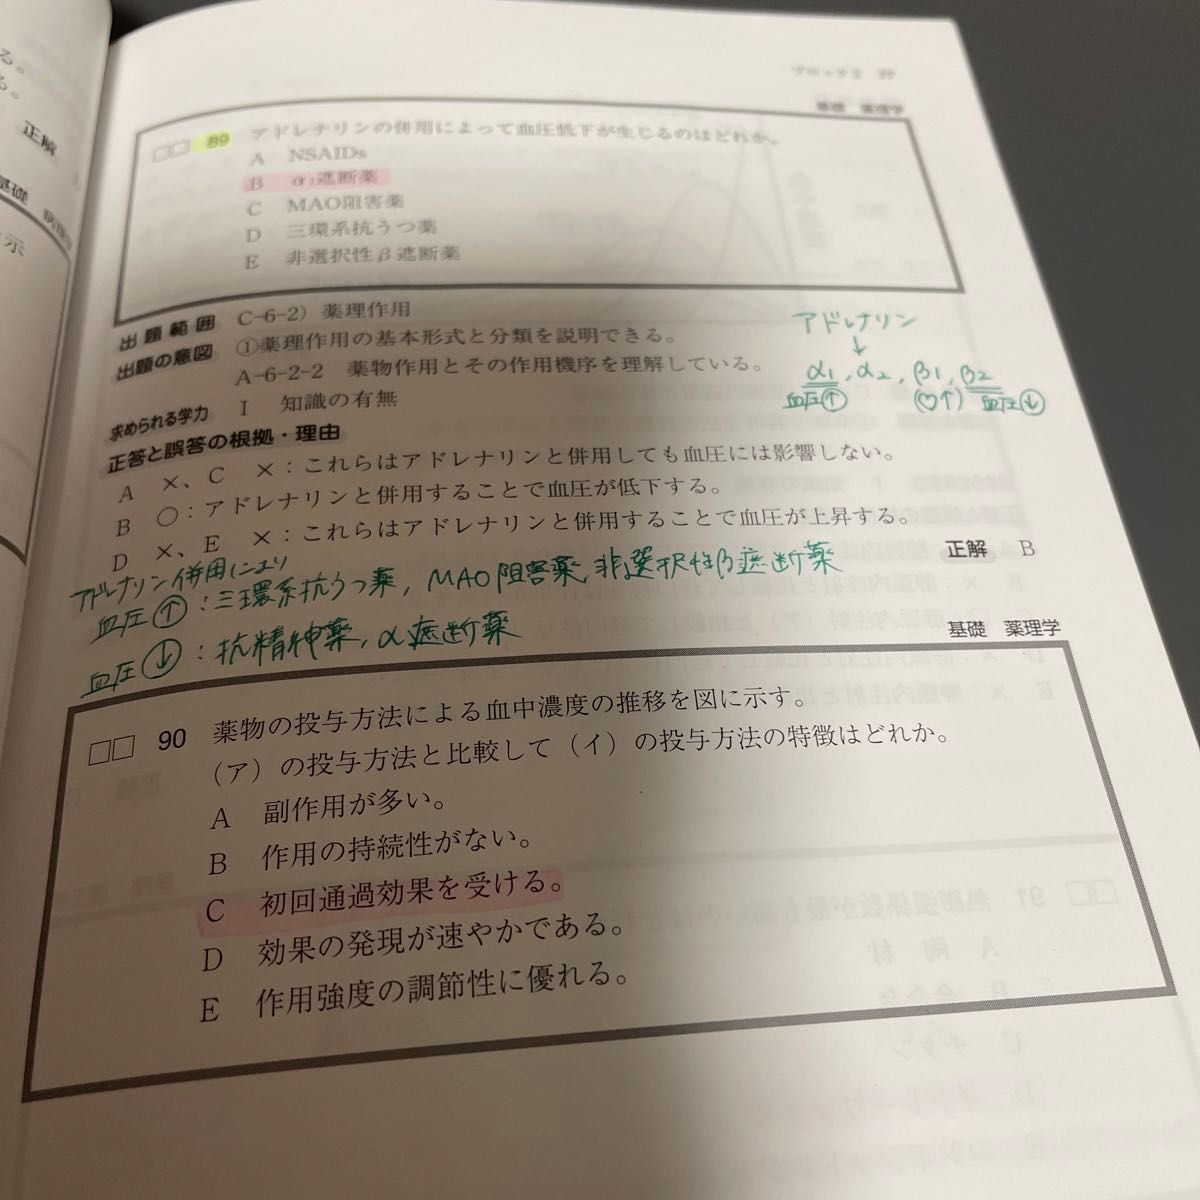 る。
る。
正解
基礎 病理学
示
基礎 薬理学
□□ 89 アドレナリンの併用によって血圧低下が生じるのはどれか。
A NSAIDs
B α₁遮断薬
C MAO阻害薬
D 三環系抗うつ薬
E 非選択性β遮断薬
出題範囲 C-6-2）薬理作用
出題の意図 ①薬理作用の基本形式と分類を説明できる。
A-6-2-2 薬物作用とその作用機序を理解している。
求められる学力 I 知識の有無
アドレナリン
↓
α1, α2, β1, β2
血圧↑ (♡↑) 血圧↓
正答と誤答の根拠・理由
A ×、C ×：これらはアドレナリンと併用しても血圧には影響しない。
B ○：アドレナリンと併用することで血圧が低下する。
D ×、E ×：これらはアドレナリンと併用することで血圧が上昇する。
正解 B
アドレナリン併用により
血圧↑：三環系抗うつ薬, MAO阻害薬, 非選択性β遮断薬
血圧↓：抗精神薬, α遮断薬
基礎 薬理学
□□ 90 薬物の投与方法による血中濃度の推移を図に示す。
（ア）の投与方法と比較して（イ）の投与方法の特徴はどれか。
A 副作用が多い。
B 作用の持続性がない。
C 初回通過効果を受ける。
D 効果の発現が速やかである。
E 作用強度の調節性に優れる。